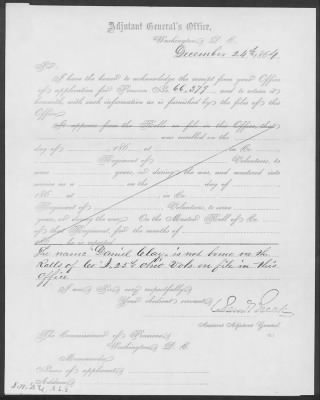 Adjutant General's Office,
Washington, D. C.
December 24th, 1864
Sir:
I have the honor to acknowledge the receipt from your Office
of application for Pension No. 66,377, and to return it
herewith, with such information as is furnished by the files of this
Office.
It appears from the Rolls on file in this Office, that
was enrolled on the
day of 186 , at in Co.
Regiment of Volunteers, to
serve years, or during the war, and mustered into
service as a on the day of
186 , at , in Co.
Regiment of Volunteers, to serve
years, or during the war. On the Muster Roll of Co.
of that Regiment, for the months of
he is reported
The name "Daniel Clay" is not borne on the
Rolls of Co , 25th Ohio Vols on file in this
Office
I am, Sir, very respectfully,
Your obedient servant,
Assistant Adjutant General.
The Commissioner of Pensions,
Washington, D. C.
Memoranda:
Name of applicant,
Address,